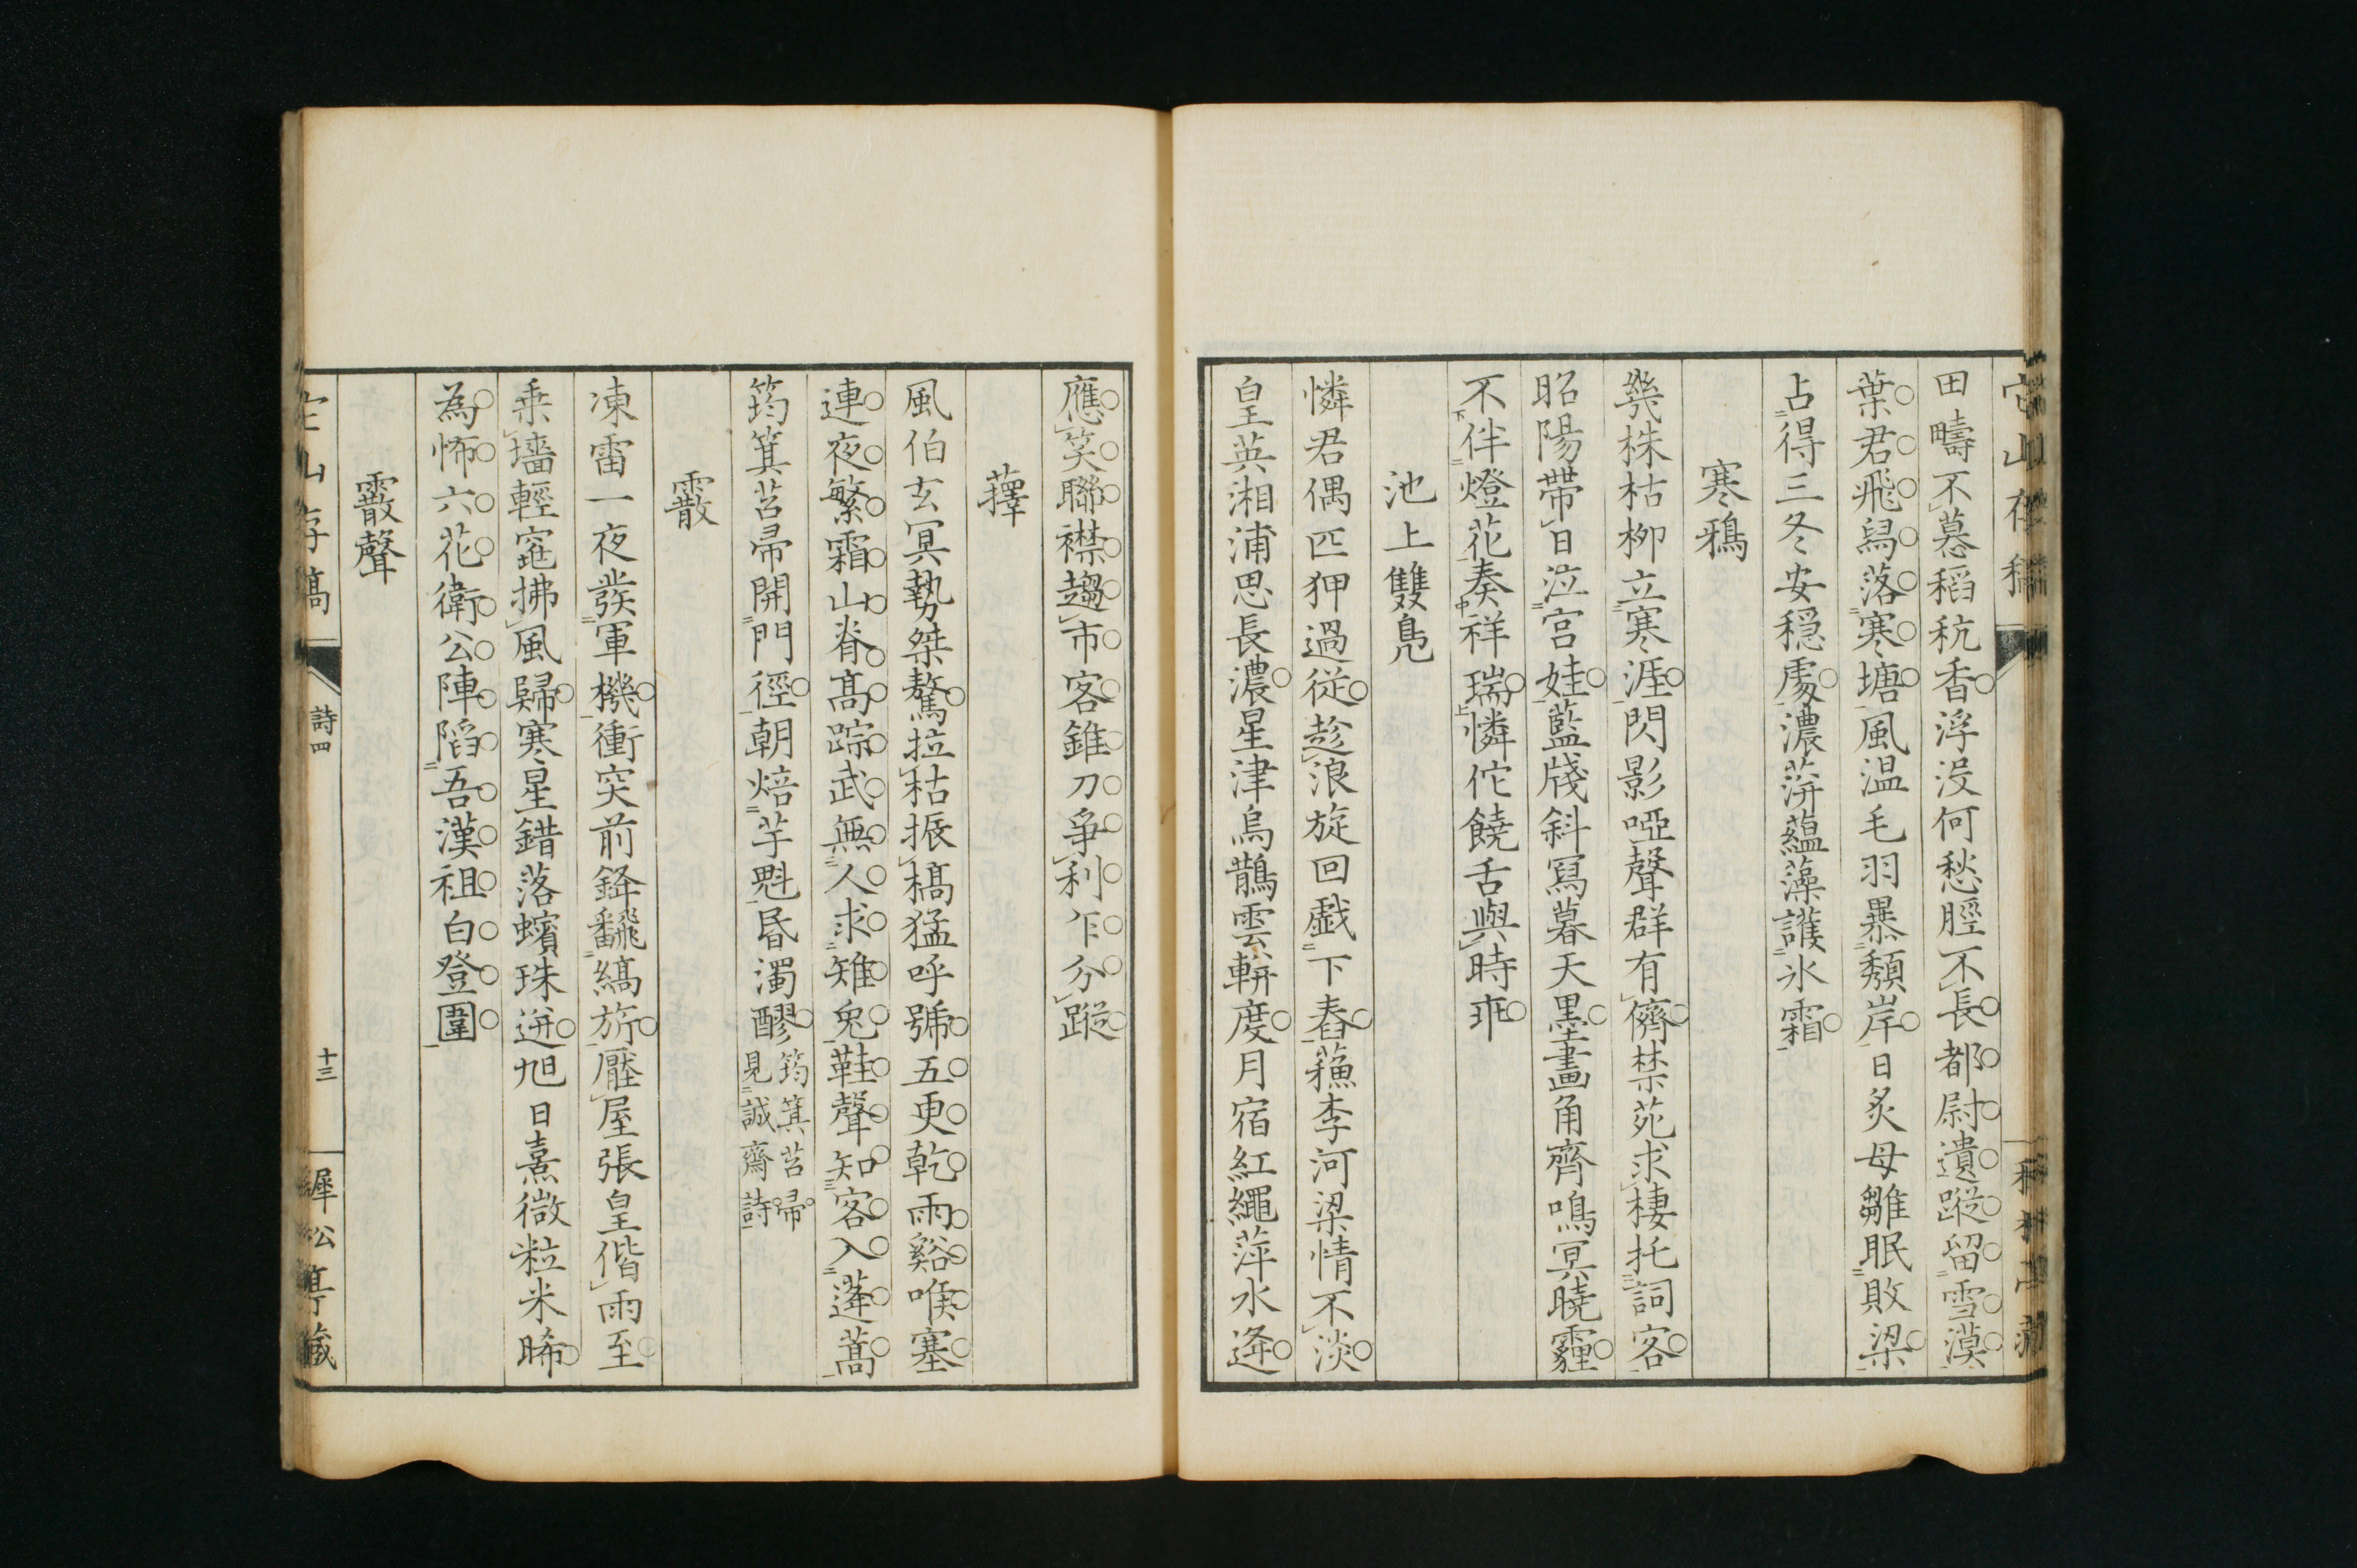 田疇不慕稻秔香浮沒何愁脛不長都尉遺蹤留雪漠
葉君飛舄落寒塘風温毛羽暴頽岸日炙母雛眠敗梁
占得三冬安穏處濃莎蘊藻護氷霜
寒鴉
幾株枯柳立寒涯閃影啞聲群有儕禁苑求棲托詞客
昭陽帶日泣宮娃藍牋斜寫暮天墨畫角齊鳴冥曉霾
不伴燈花奏祥瑞憐佗饒舌與時乖
池上雙鳬
憐君偶匹狎過從趁浪旋回戯下舂蘓李河梁情不淡
皇英湘浦思長濃星津烏鵲雲軿度月宿紅繩萍水逢
應笑聯襟趨市客錐刀爭利乍分蹤
蘀
風伯玄冥勢桀驁拉枯振槁猛呼號五更乾雨谿喉塞
連夜繁霜山脊高踪武無人求雉兔鞋聲知客入蓬蒿
筠箕苕帚開門徑朝焙芋魁昏濁醪
筠箕苕帚
見誠齋詩
霰
凍雷一夜發軍機衝突前鋒飜縞旂壓屋張皇偕雨至
乘墻輕竄拂風歸寒星錯落蠙珠迸旭日熹微粒米晞
為怖六花衛公陣謟吾漢祖白登圍
霰聲
詩四
十三
犀松亭藏